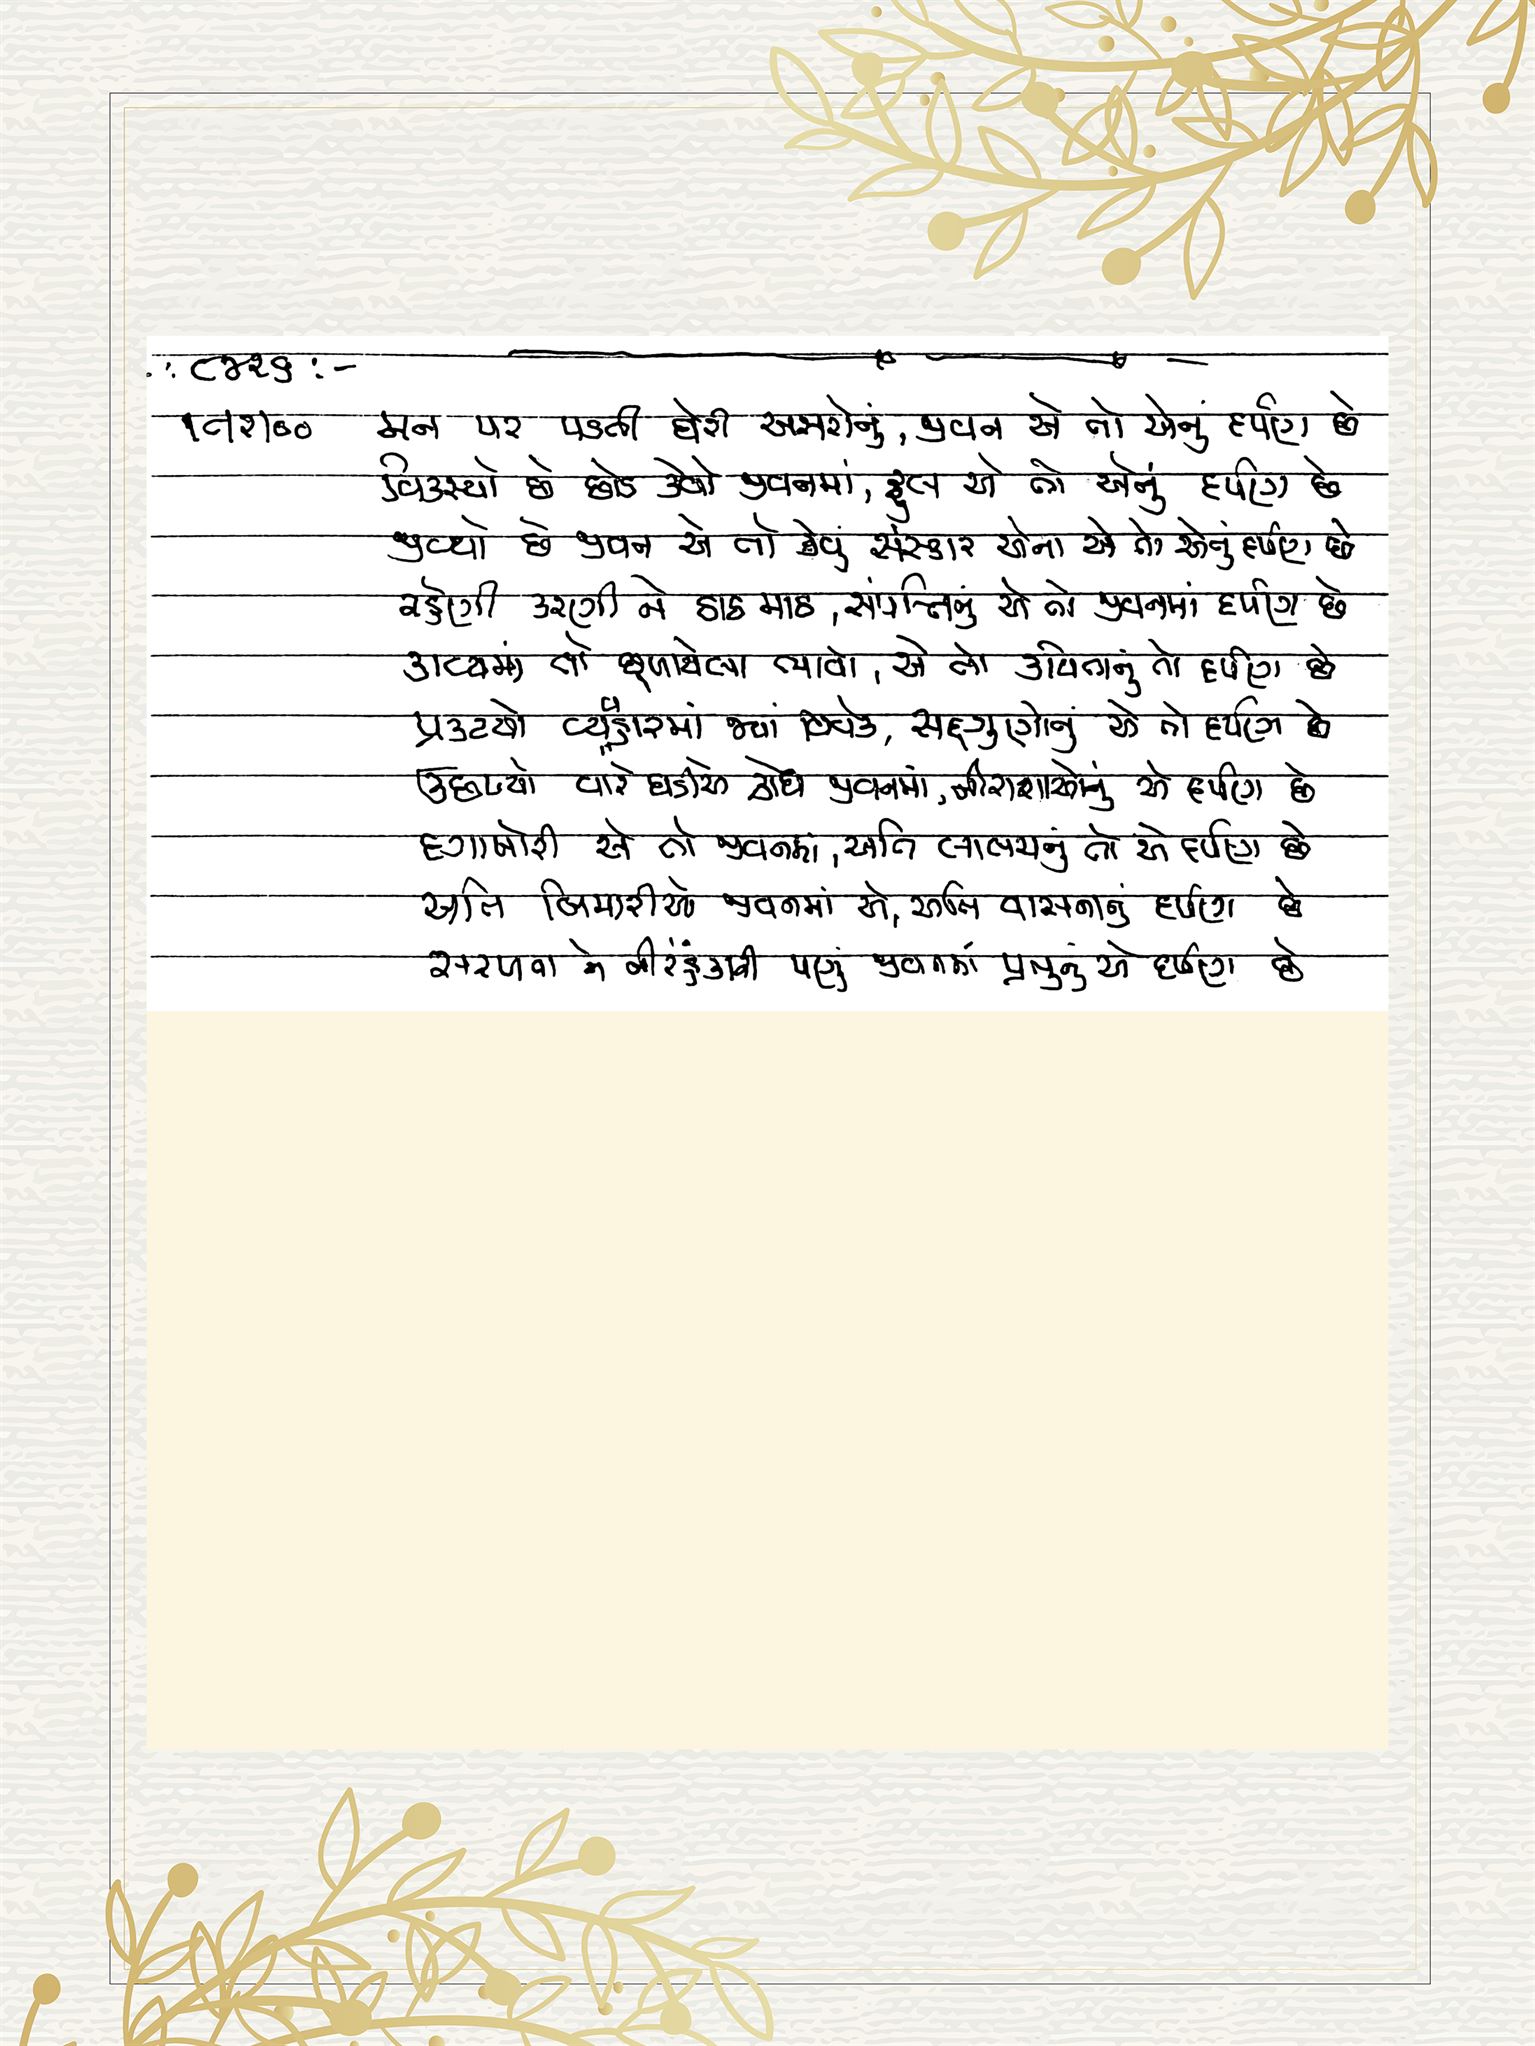 :ઃ ૮૪૨૬ :-
૧ન૨ા૦૦ મન પર પડતી ઘેરી અસરોનું, જીવન એ તો એનું દર્પણ છે
વિકસ્યો છે છોડ કેવો જીવનમાં, ફુલ એ તો એનું દર્પણ છે
જીવ્યો છે જીવન એ તો કેવું સંસ્કાર એના એ તો એનું દર્પણ છે
રહેણી કરણી ને ઠાઠ માઠ, સંપત્તિનું એ તો જીવનમાં દર્પણ છે
કાવ્યમાં તો છૂપાયેલા ભાવો, એ તો કવિતાનું તો દર્પણ છે
પ્રકટયો વ્યવહારમાં જ્યાં વિવેક, સદ્દગુણોનું એ તો દર્પણ છે
ઉછળ્યો વારે ઘડીએ ક્રોધ જીવનમાં, નીરાશાઓનું એ દર્પણ છે
દગાખોરી એ તો જીવનમાં, અતિ લાલચનું તો એ દર્પણ છે
અતિ બિમારીઓ જીવનમાં એ, અતિ વાસનાનું દર્પણ છે
સરળતા ને નીરહંકારી પણું જીવનમાં પ્રભુનું એ દર્પણ છે